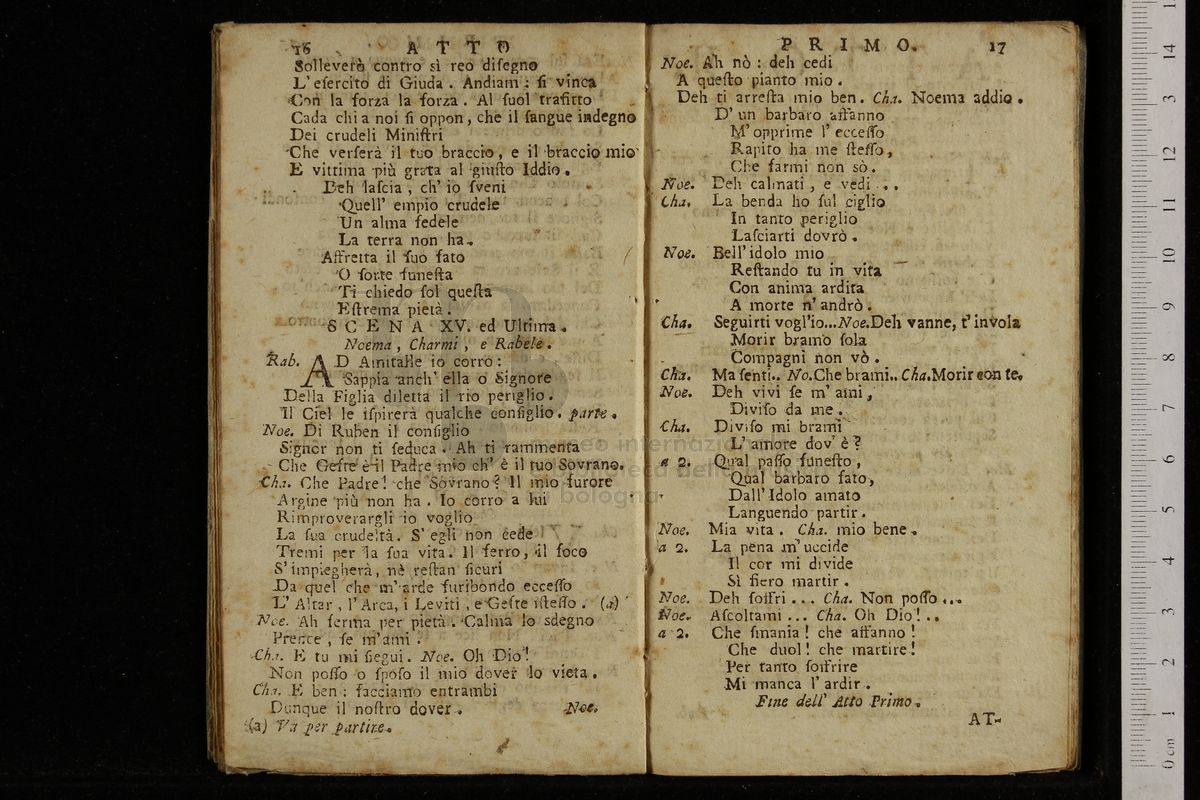 16 ATTO
Solleverà contro sì reo diſegno
L' eſercito di Giuda . Andiam : ſi vinca
Con la forza la forza . Al ſuol trafitto
Cada chi a noi ſi oppon, che il ſangue indegno
Dei crudeli Miniſtri
Che verſerà il tuo braccio, e il braccio mio
E vittima più grata al giuſto Iddio .
Deh laſcia , ch' io ſveni
Quell' empio crudele
Un alma fedele
La terra non ha .
Affretta il ſuo fato
O ſorte funeſta
Ti chiedo ſol queſta
Eſtrema pietà .
SCENA XV. ed Ultima .
Noema , Charmi , e Rabele .
Rab. AD Amitalle io corro :
Sappia anch' ella o Signore
Della Figlia diletta il rio periglio .
Il Ciel le iſpirerà qualche conſiglio . parte .
Noe. Di Ruben il conſiglio
Signor non ti ſeduca . Ah ti rammenta
Che Gefte è il Padre mio ch' è il tuo Sovrano.
Cha. Che Padre! che Sovrano? Il mio furore
Argine più non ha . Io corro a lui
Rimproverargli io voglio
La ſua crudeltà . S' egli non cede
Tremi per la ſua vita . Il ferro, il foco
S' impiegherà, nè reſtan ſicuri
Da quel che m' arde furibondo ecceſſo
L' Altar , l' Arca, i Leviti , e Gefte iſteſſo . (a)
Noe. Ah ferma per pietà . Calma lo sdegno
Prence , ſe m' ami .
Cha. E tu mi ſiegui . Noe. Oh Dio!
Non poſſo o ſpoſo il mio dover lo vieta .
Cha. E ben : facciamo entrambi
Dunque il noſtro dover . Noe.
(a) Va per partire.
PRIMO. 17
Noe. Ah nò : deh cedi
A queſto pianto mio .
Deh ti arreſta mio ben . Cha. Noema addio .
D' un barbaro affanno
M' opprime l' ecceſſo
Rapito ha me ſteſſo ,
Che farmi non sò .
Noe. Deh calmati , e vedi ...
Cha. La benda ho ſul ciglio
In tanto periglio
Laſciarti dovrò .
Noe. Bell' idolo mio
Reſtando tu in vita
Con anima ardita
A morte n' andrò .
Cha. Seguirti vogl'io... Noe. Deh vanne, t' invola
Morir bramo ſola
Compagni non vò .
Cha. Ma ſenti.. No. Che brami.. Cha. Morir con te.
Noe. Deh vivi ſe m' ami ,
Diviſo da me .
Cha. Diviſo mi brami
L' amore dov' è ?
a 2. Qual paſſo funeſto ,
Qual barbaro fato ,
Dall' Idolo amato
Languendo partir .
Noe. Mia vita . Cha. mio bene .
a 2. La pena m' uccide
Il cor mi divide
Sì fiero martir .
Noe. Deh ſoffri ... Cha. Non poſſo ...
Noe. Aſcoltami ... Cha. Oh Dio! ..
a 2. Che ſmania ! che affanno !
Che duol ! che martire !
Per tanto ſoffrire
Mi manca l' ardir .
Fine dell' Atto Primo .
AT-